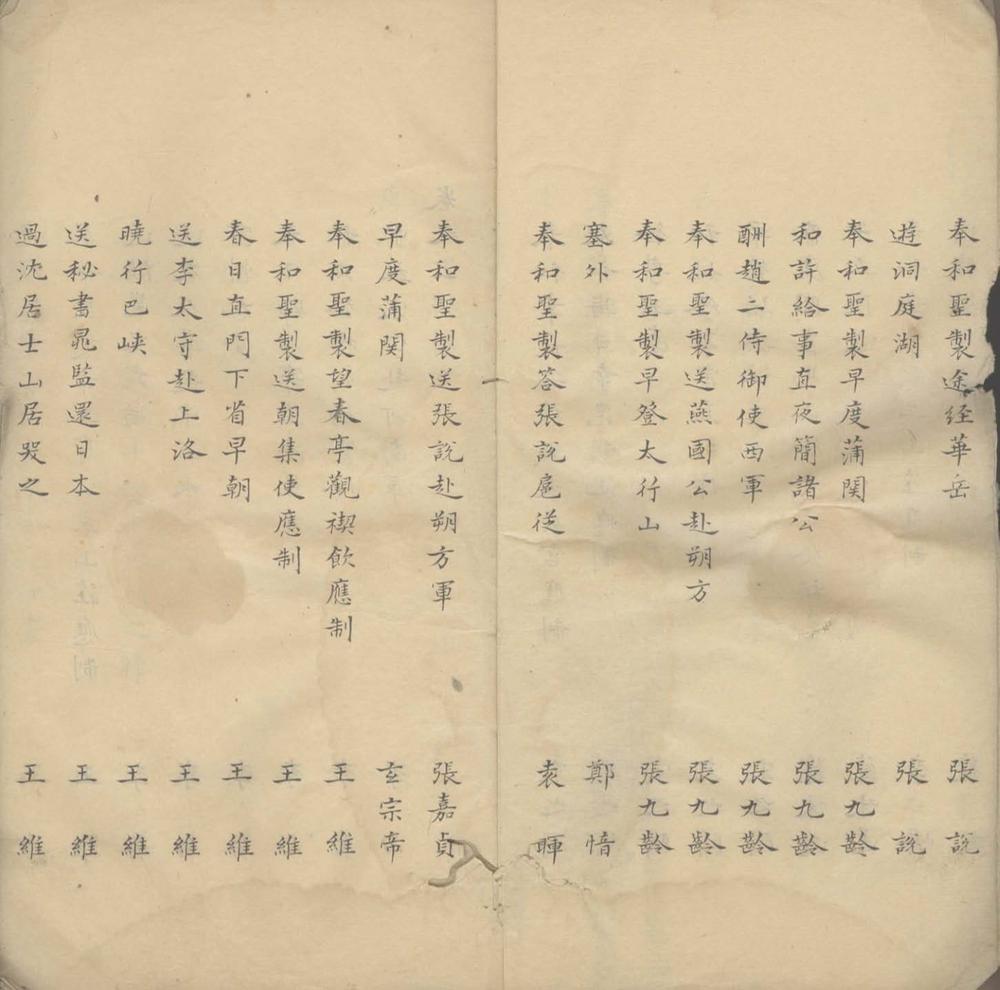 奉和聖製途経華岳 張說
遊洞庭湖 張說
奉和聖製早度蒲関 張九齡
和許給事直夜簡諸公 張九齡
酬趙二侍御使西軍 張九齡
奉和聖製送燕國公赴朔方 張九齡
奉和聖製早登太行山 張九齡
塞外 鄭愔
奉和聖製答張說扈從 袁暉
奉和聖製送張說赴朔方軍 張嘉貞
早度蒲関 玄宗帝
奉和聖製望春亭觀禊飲應制 王維
奉和聖製送朝集使應制 王維
春日直門下省早朝 王維
送李太守赴上洛 王維
曉行巴峽 王維
送秘書晁監還日本 王維
過沈居士山居哭之 王維